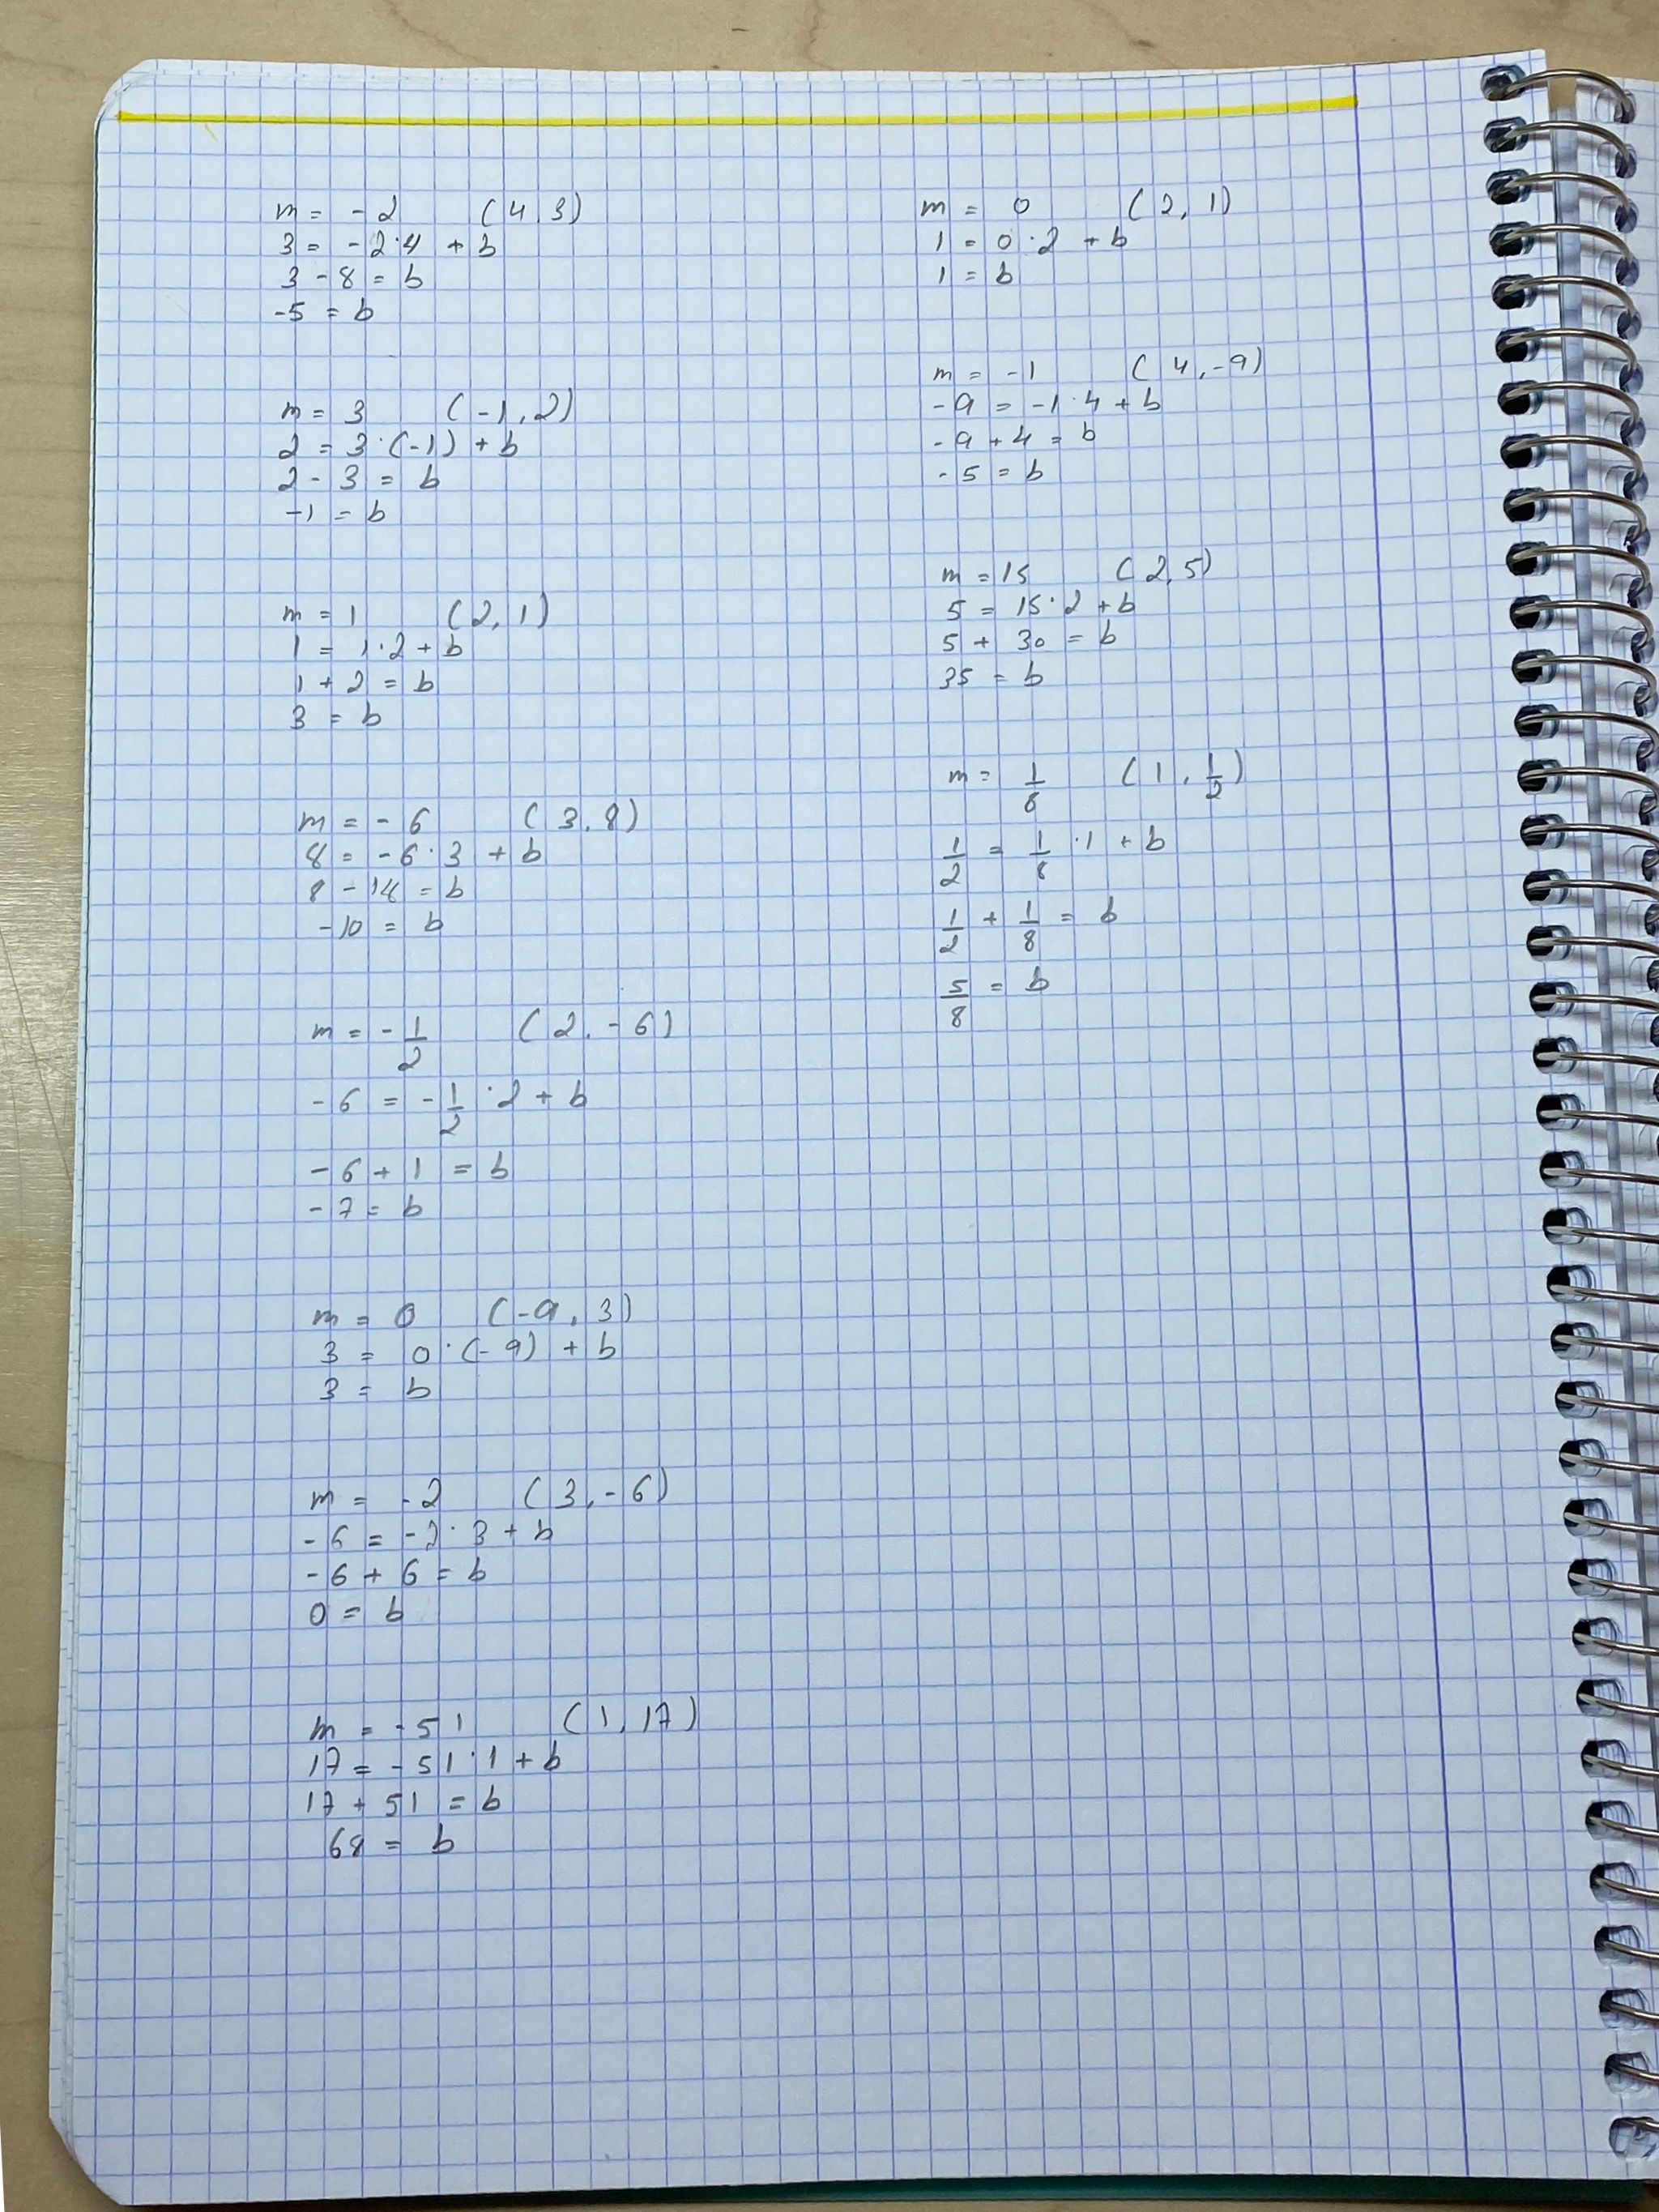 m = -2 (4,3)
3 = -2·4 + b
3 - 8 = b
-5 = b
m = 3 (-1,2)
2 = 3·(-1) + b
2 - 3 = b
-1 = b
m = 1 (2,1)
1 = 1·2 + b
1 + 2 = b
3 = b
m = -6 (3,8)
8 = -6·3 + b
8 - 18 = b
-10 = b
m = -1/2 (2,-6)
-6 = -1/2·2 + b
-6 + 1 = b
-7 = b
m = 0 (-9,3)
3 = 0·(-9) + b
3 = b
m = -2 (3,-6)
-6 = -2·3 + b
-6 + 6 = b
0 = b
m = -51 (1,17)
17 = -51·1 + b
17 + 51 = b
68 = b
m = 0 (2,1)
1 = 0·2 + b
1 = b
m = -1 (4,-9)
-9 = -1·4 + b
-9 + 4 = b
-5 = b
m = 15 (2,5)
5 = 15·2 + b
5 + 30 = b
35 = b
m = 1/8 (1,1/2)
1/2 = 1/8·1 + b
1/2 + 1/8 = b
5/8 = b